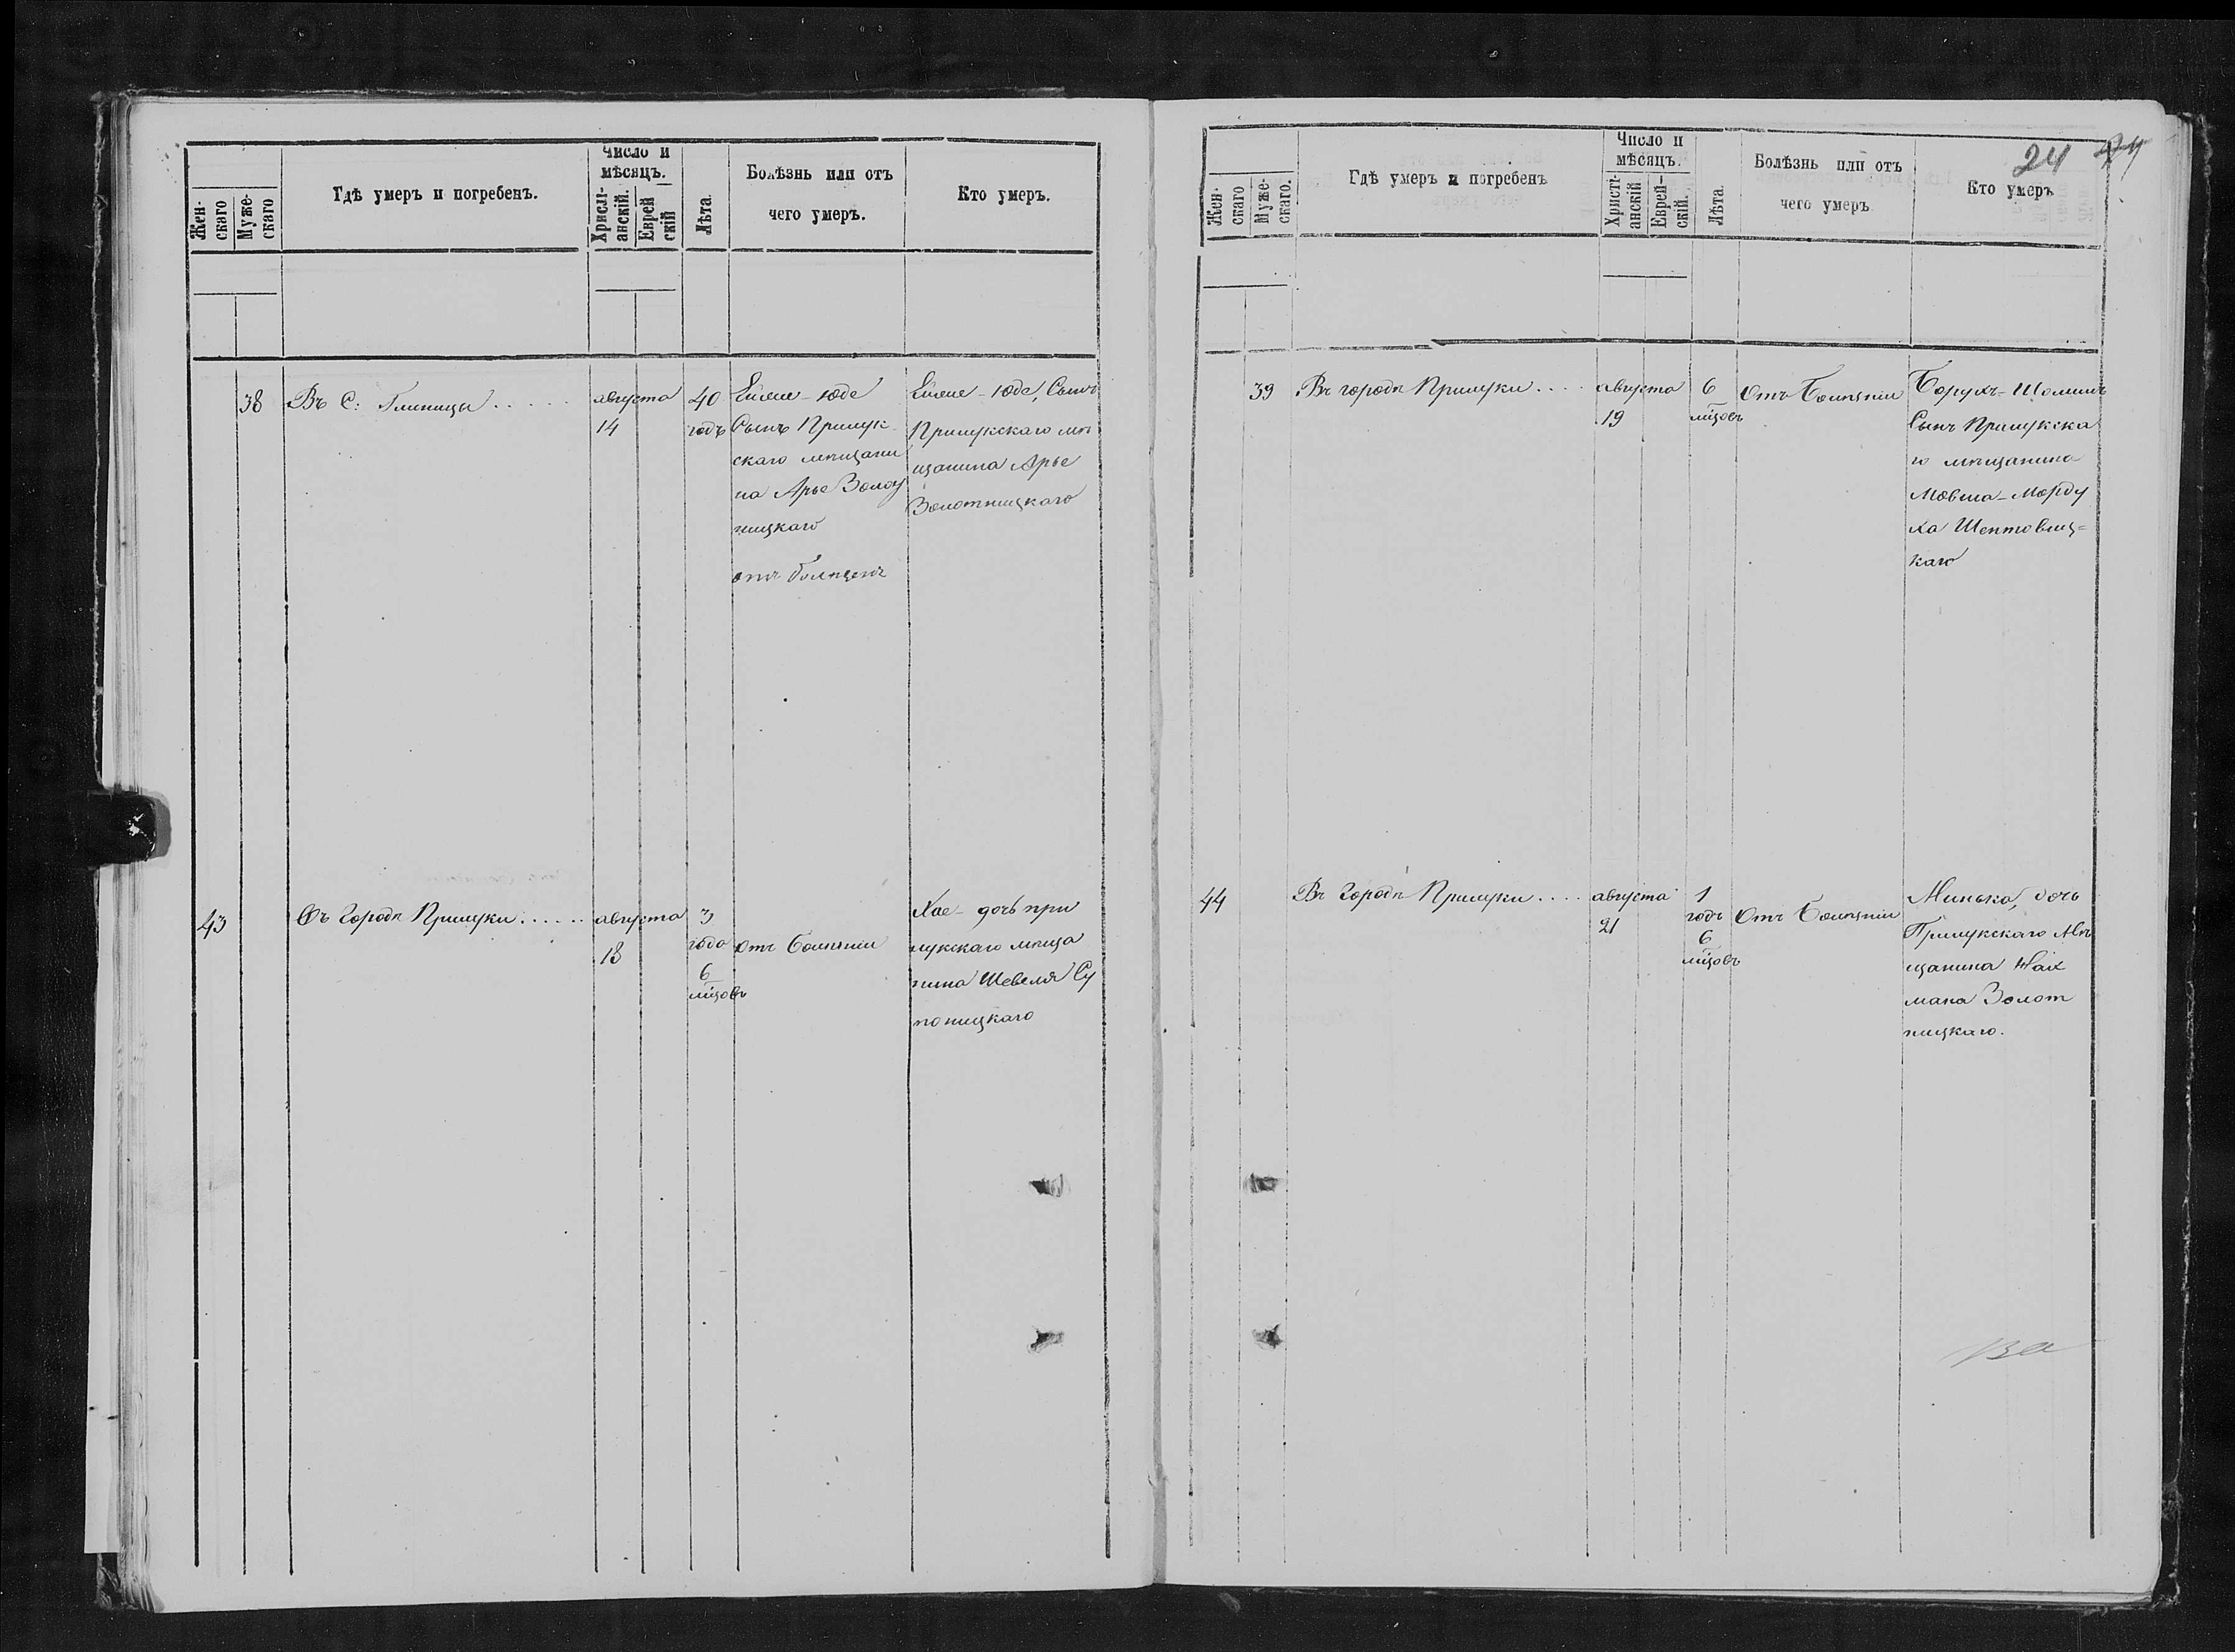 Жен-
скаго
Муже-
скаго
Гдѣ умеръ и погребенъ.
Число и
мѣсяцъ.
Христі-
анскій.
Еврей
скій
Лѣта.
Болѣзнь или отъ
чего умеръ.
Кто умеръ.
38
Въ С: Глиницы . . . . .
августа
14
40
годъ
Сынъ Прилук
скаго мѣщани
на Арье Золот
ницкаго
отъ болѣзни
Юде, Сынъ
Прилукскаго мѣ
щанина Арье
Золотницкаго
43
Въ Городѣ Прилуки . . . . . .
августа
18
3
года
6
мѣцовъ
Отъ болѣзни
Хае - дочь при
лукскаго мѣща
нина Шевеля Су
ницкаго
24
Жен-
скаго
Муже-
скаго.
Гдѣ умеръ и погребенъ
Число и
мѣсяцъ.
Христі-
анскій
Еврей-
скій.
Лѣта.
Болѣзнь или отъ
чего умеръ
Кто умеръ
39
Въ городѣ Прилуки . . . .
августа
19
6
мѣцовъ
Отъ Болѣзни
Борухъ-Шоломъ
Сынъ Прилукска
го мѣщанина
Мовша-Морду
ха Шептовиц=
каго
44
Въ Городѣ Прилуки . . . .
августа
21
1
годъ
6
мѣцовъ
Отъ Болѣзни
Минька, дочь
Прилукскаго мѣ
щанина Най
мана Золот
ницкаго.